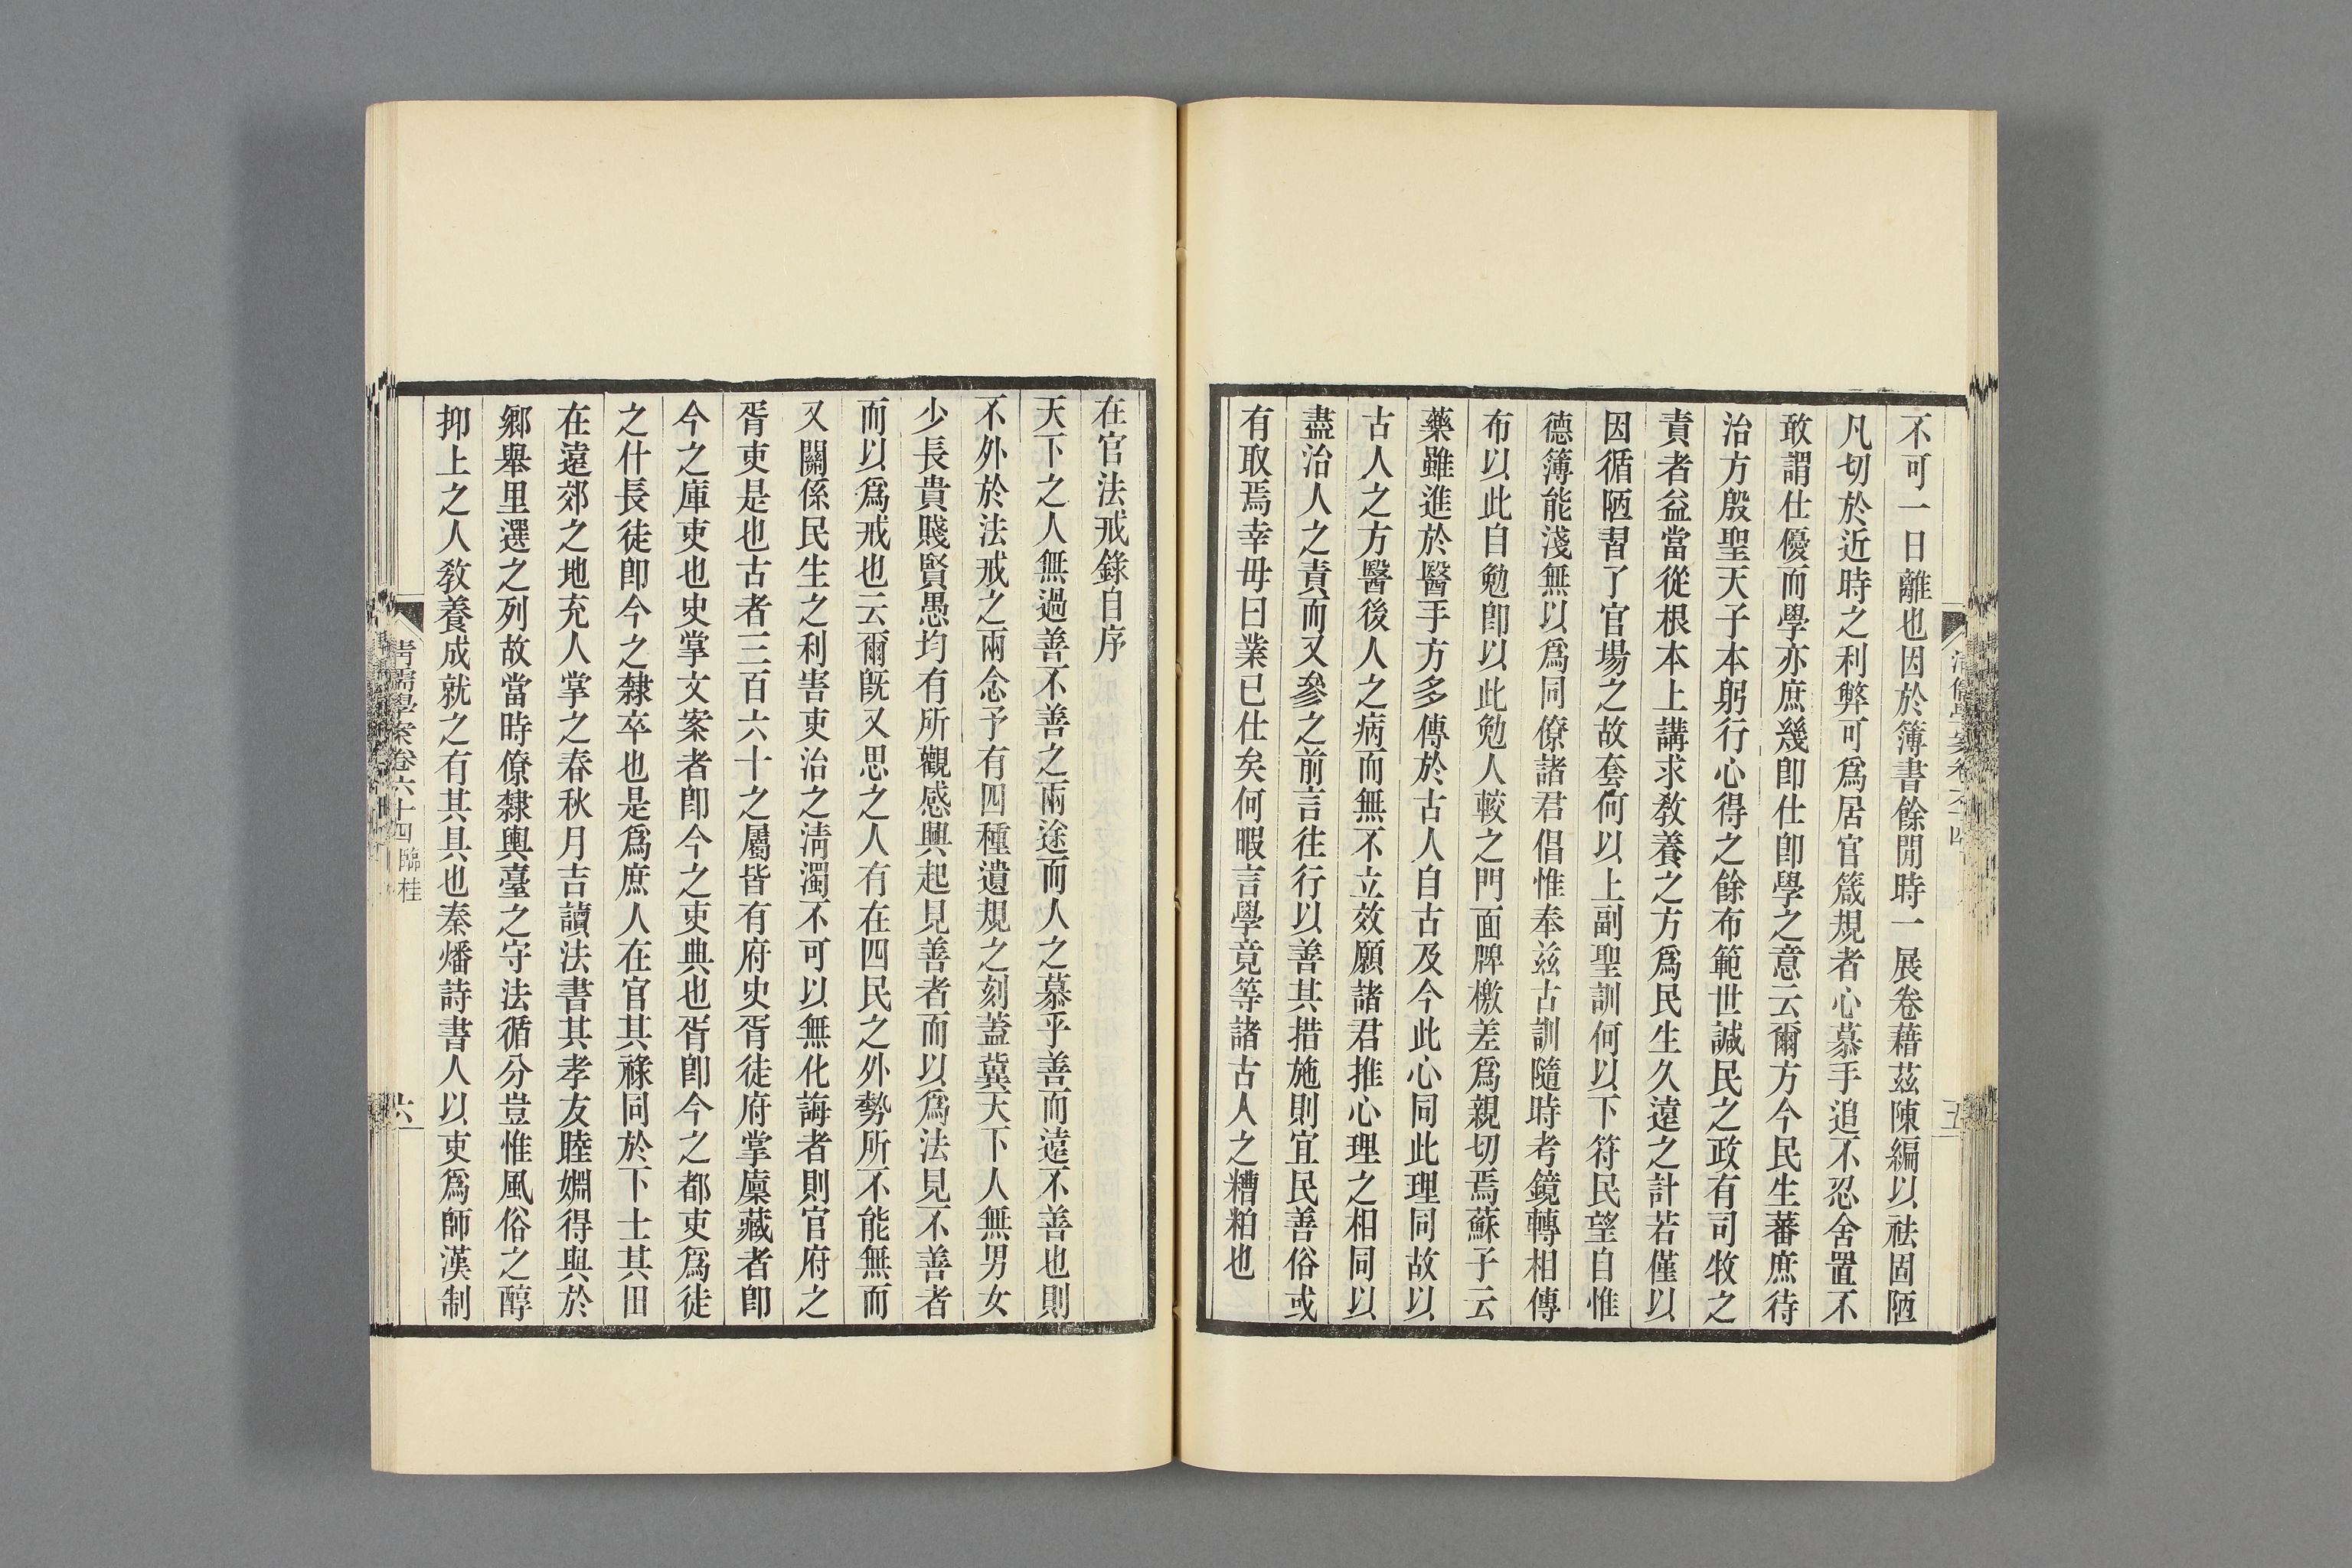 不可一日離也因於簿書餘閒時一展卷藉茲陳編以祛固陋
凡切於近時之利弊可爲居官箴規者心慕手追不忍舍置不
敢謂仕優而學亦庶幾卽仕卽學之意云爾方今民生蕃庶待
治方殷聖天子本躬行心得之餘布範世諴民之政有司牧之
責者益當從根本上講求敎養之方爲民生久遠之計若僅以
因循陋習了官場之故套何以上副聖訓何以下符民望自惟
德簿能淺無以爲同僚諸君倡惟奉茲古訓隨時考鏡轉相傳
布以此自勉卽以此勉人較之門面牌檄差爲親切焉蘇子云
藥雖進於醫手方多傳於古人自古及今此心同此理同故以
古人之方醫後人之病而無不立效願諸君推心理之相同以
盡治人之責而又參之前言往行以善其措施則宜民善俗或
有取焉幸毋曰業已仕矣何暇言學竟等諸古人之糟粕也
清儒學案卷六十四
五
在官法戒錄自序
天下之人無過善不善之兩途而人之慕乎善而遠不善也則
不外於法戒之兩念予有四種遺規之刻蓋冀天下人無男女
少長貴賤賢愚均有所觀感興起見善者而以爲法見不善者
而以爲戒也云爾旣又思之人有在四民之外勢所不能無而
又關係民生之利害吏治之淸濁不可以無化誨者則官府之
胥吏是也古者三百六十之屬皆有府史胥徒府掌廩藏者卽
今之庫吏也史掌文案者卽今之吏典也胥卽今之都吏爲徒
之什長徒卽今之隸卒也是爲庶人在官其祿同於下士其田
在遠郊之地充人掌之春秋月吉讀法書其孝友睦婣得與於
鄉舉里選之列故當時僚隸輿臺之守法循分豈惟風俗之醇
抑上之人敎養成就之有其具也秦燔詩書人以吏爲師漢制
清儒學案卷六十四 臨桂
六